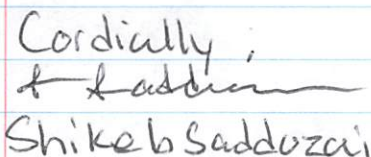 Cordially,
Shikeb Saddozai